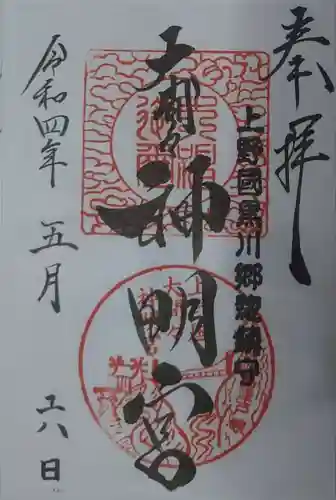 奉拝
上野國黒川郷総鎮守
大間々神明宮
令和四年
五月
二八日